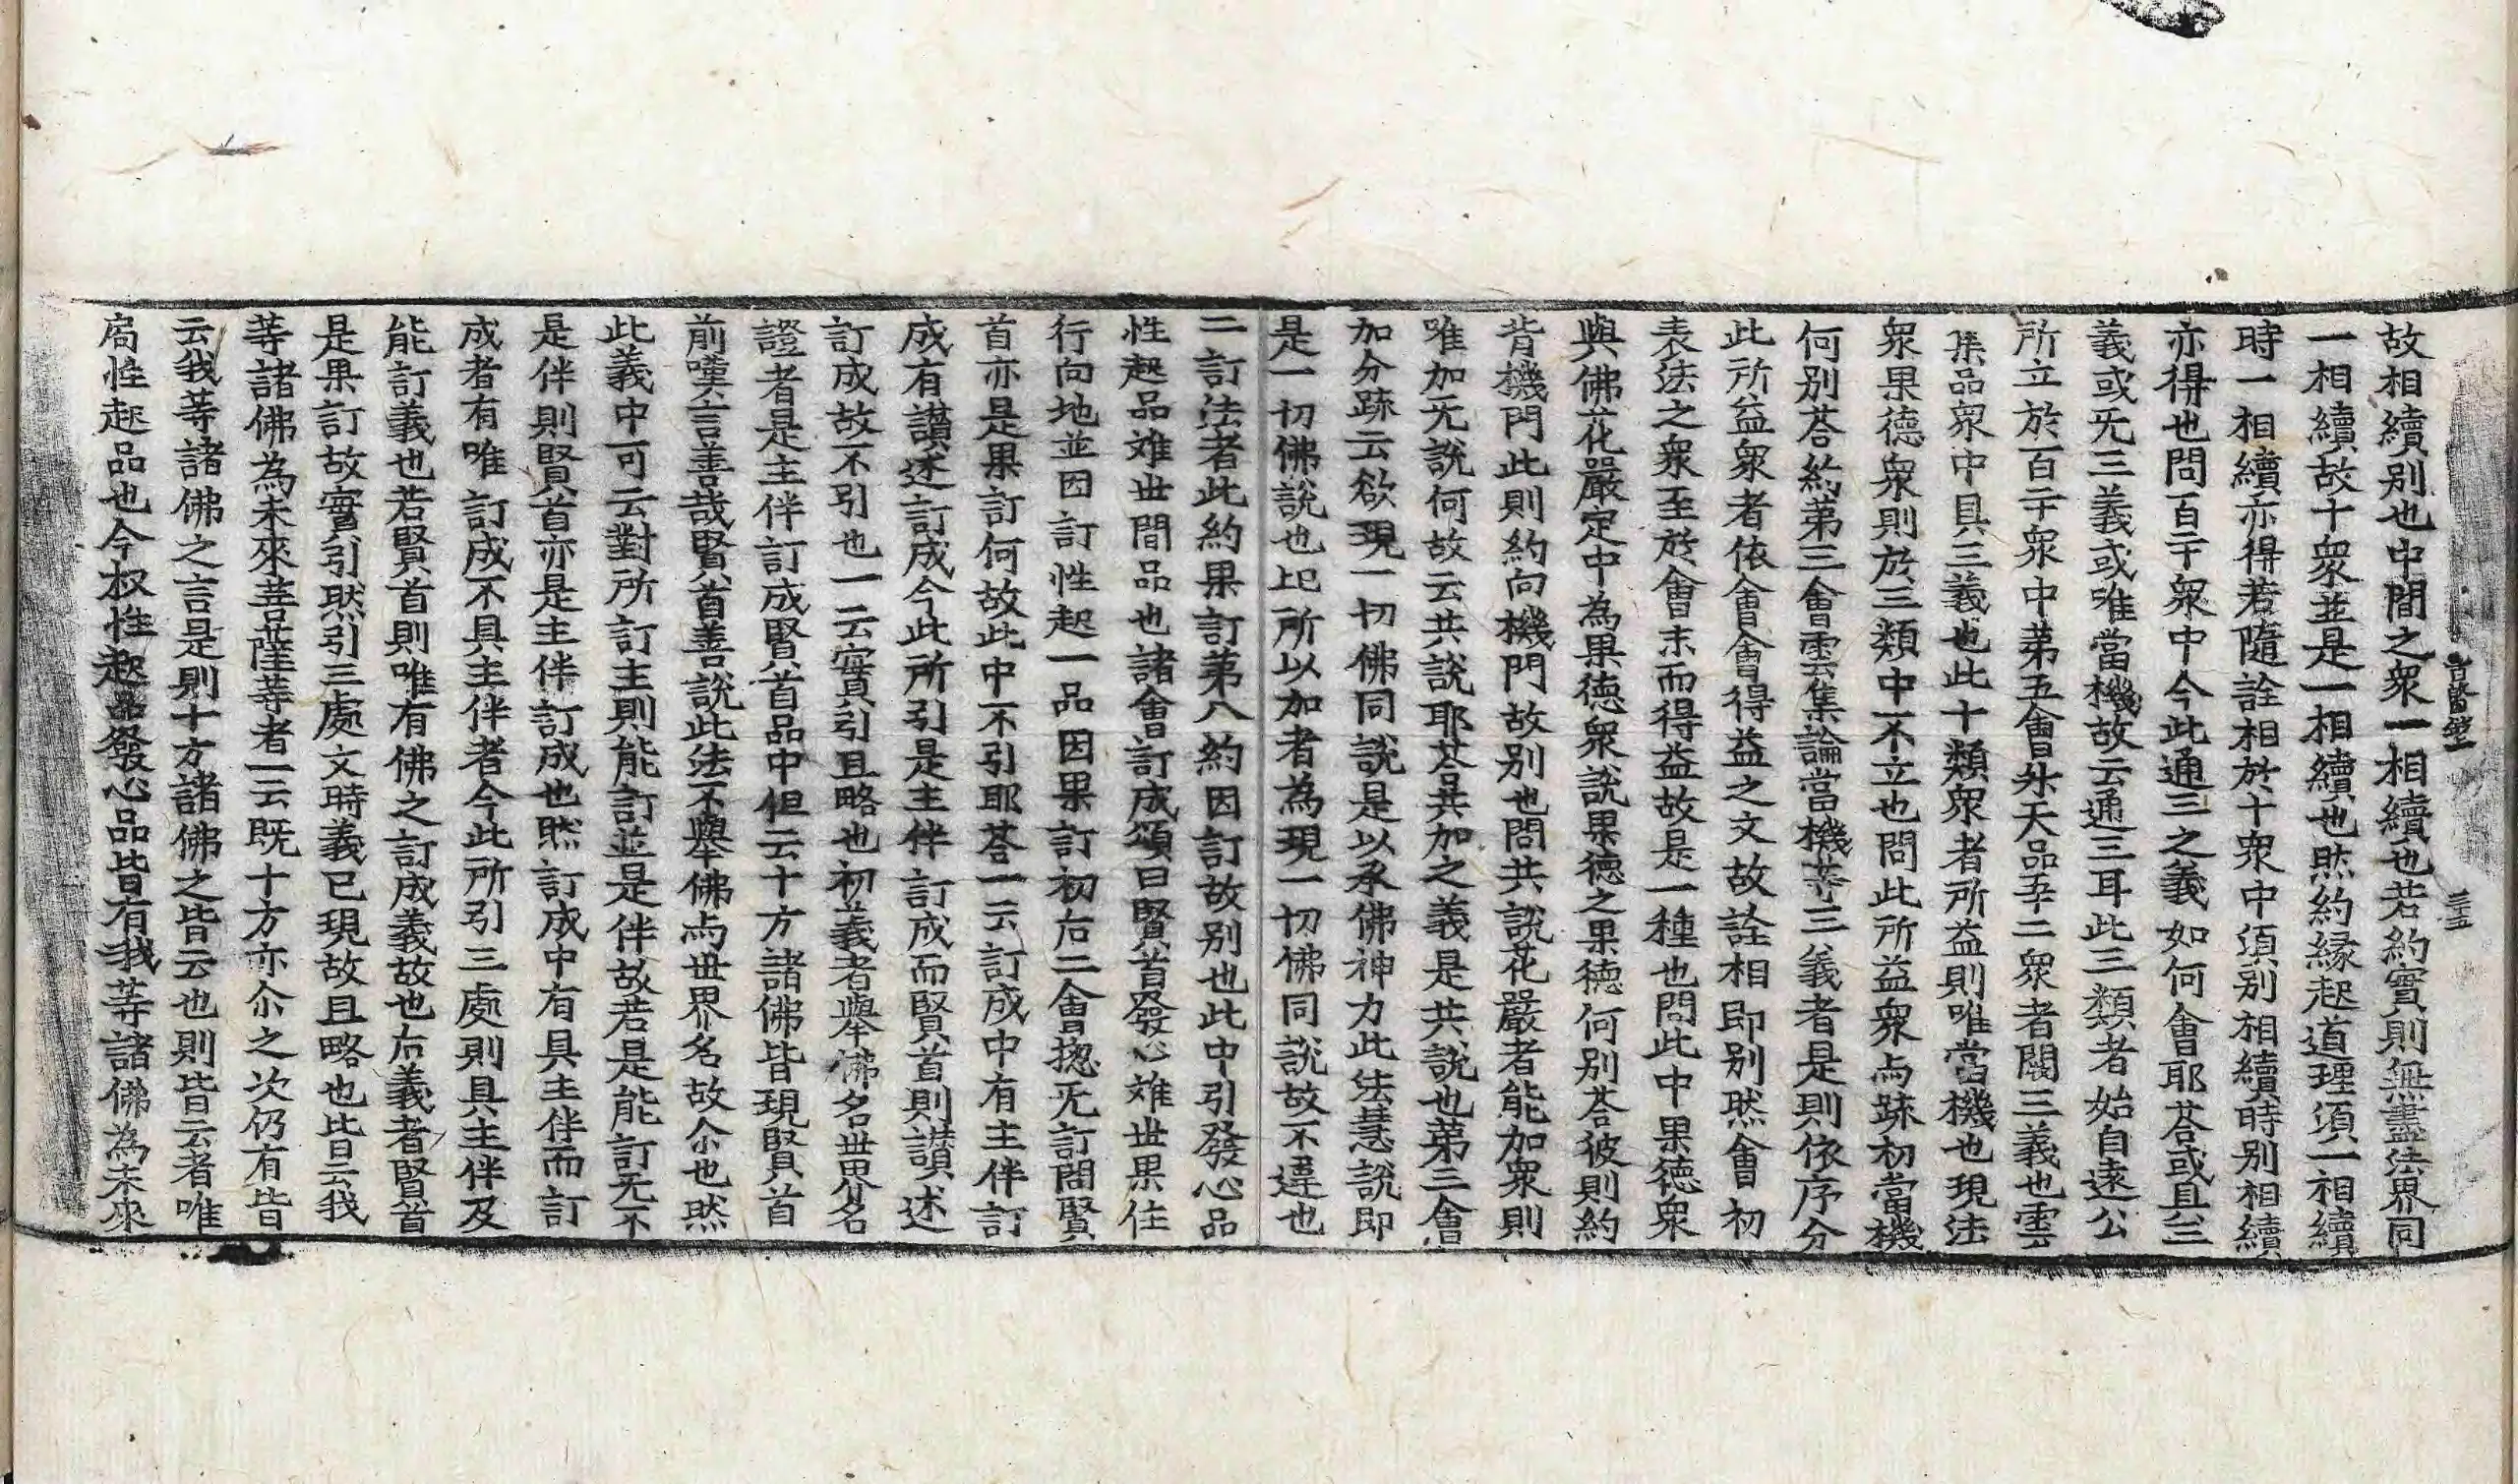 故相續别也中間之衆一相續也若約實則無盡法界同
一相續故十衆並是一相續也然約縁起道理湏一相續
時一相續亦得若隨詮相於十衆中湏别相續時别相續
亦得也問百千衆中今此通三之義如何會耶荅或具三
義或无三義或唯當機故云通三耳此三類者始自遠公
所立於百千衆中苐五會外天品五十二衆者闕三義也雲
集品衆中具三義也此十類衆者所益則唯當機也現法
衆果德衆則於三類中不立也問此所益衆与跡初當機
何别荅約苐三會雲集論當機等三義者是則依序分
此所益衆者依會會得益之文故詮相即别然會初
表法之衆至於會末而得益故是一種也問此中果德衆
與佛花嚴定中為果德衆說果德之果德何别荅彼則約
背機門此則約向機門故别也問共說花嚴者能加衆則
唯加无說何故云共說耶荅共加之義是共說也苐三會
加分跡云欲現一切佛同說是以承佛神力此法慧說即
是一切佛說也所以加者為現一切佛同說故不違也
二訂法者此約果訂苐八約因訂故别也此中引發心品
性起品難世間品也諸會訂成頌曰賢首發心難世果住
行向地並因訂性起一品因果訂初右二會揔无訂闕賢
首亦是果訂何故此中不引耶荅一云訂成中有主伴訂
成有讃述訂成今此所引是主伴訂成而賢首則讃述
訂成故不引也一云實引且略也初義者舉佛名世界名
證者是主伴訂成賢首品中但云十方諸佛皆現賢首
前嘆言善哉賢首善說此法不舉佛与世界名故尒也然
此義中可云對所訂主則能訂並是伴故若是能訂无不
是伴則賢首亦是主伴訂成也然訂成中有具主伴而訂
成者有唯訂成不具主伴者今此所引三處則具主伴及
能訂義也若賢首則唯有佛之訂成義故也右義者賢首
是果訂故實引然引三處文時義已現故且略也皆云我
等諸佛為未來菩薩等者一云既十方亦尒之次仍有皆
云我等諸佛之言是則十方諸佛之皆云也則皆云者唯
局性起品也今权性起品發心品皆有我等諸佛為未來